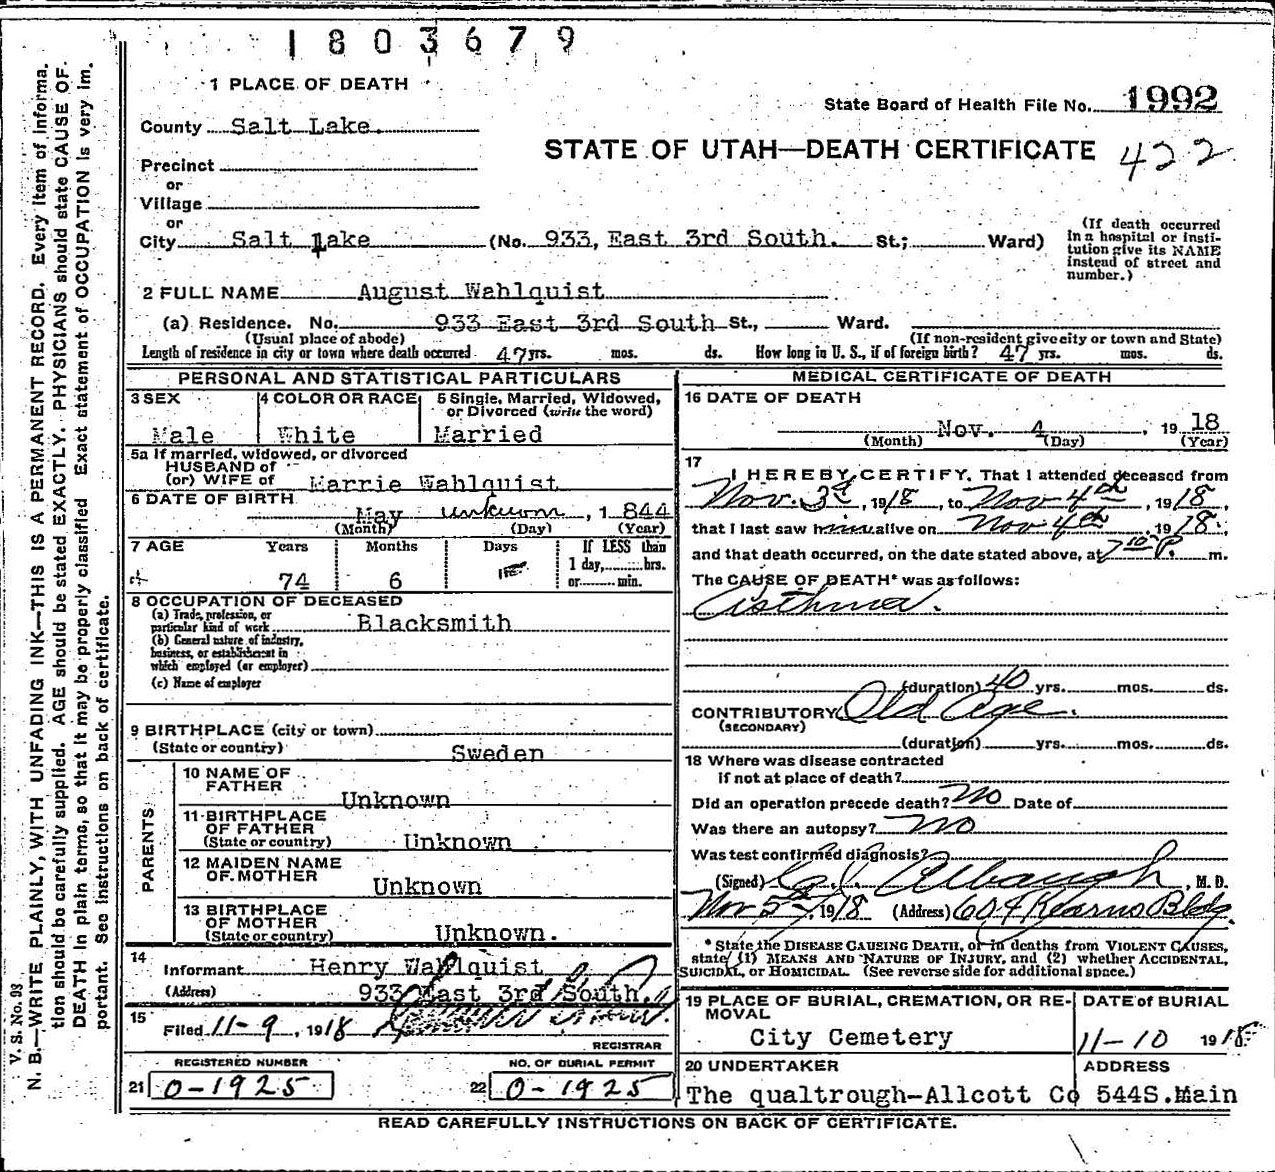 1803679
1 PLACE OF DEATH
State Board of Health File No. 1992
County Salt Lake.
STATE OF UTAH—DEATH CERTIFICATE 422
Precinct
or
Village
or
City Salt Lake (No. 933, East 3rd South. St.; Ward)
(If death occurred
in a hospital or insti-
tution give its NAME
instead of street and
number.)
2 FULL NAME August Wahlquist
(a) Residence. No. 933 East 3rd South St., Ward.
(Usual place of abode) (If non-resident give city or town and State)
Length of residence in city or town where death occurred 47 yrs. mos. ds. How long in U. S., if of foreign birth? 47 yrs. mos. ds.
PERSONAL AND STATISTICAL PARTICULARS
3 SEX
Male
4 COLOR OR RACE
White
5 Single, Married, Widowed,
or Divorced (write the word)
Married
5a If married, widowed, or divorced
HUSBAND of
(or) WIFE of Marrie Wahlquist
6 DATE OF BIRTH
May unknown, 1 844
(Month) (Day) (Year)
7 AGE Years Months Days If LESS than
1 day, hrs.
or min.
74 6
8 OCCUPATION OF DECEASED
(a) Trade, profession, or
particular kind of work Blacksmith
(b) General nature of industry,
business, or establishment in
which employed (or employer)
(c) Name of employer
9 BIRTHPLACE (city or town)
(State or country) Sweden
PARENTS
10 NAME OF
FATHER Unknown
11 BIRTHPLACE
OF FATHER
(State or country) Unknown
12 MAIDEN NAME
OF MOTHER Unknown
13 BIRTHPLACE
OF MOTHER
(State or country) Unknown.
14
Informant Henry Wahlquist
(Address) 933 East 3rd South.
15
Filed 11-9, 1918
REGISTRAR
REGISTERED NUMBER
21 0-1925
NO. OF BURIAL PERMIT
22 0-1925
MEDICAL CERTIFICATE OF DEATH
16 DATE OF DEATH
Nov. 4, 19 18
(Month) (Day) (Year)
17
I HEREBY CERTIFY, That I attended deceased from
Nov. 3d, 1918, to Nov 4th, 1918,
that I last saw him alive on Nov 4th, 1918,
and that death occurred, on the date stated above, at 7 10 P. m.
The CAUSE OF DEATH* was as follows:
Asthma.
(duration) 40 yrs. mos. ds.
CONTRIBUTORY Old Age.
(SECONDARY)
(duration) yrs. mos. ds.
18 Where was disease contracted
if not at place of death?
Did an operation precede death? No Date of
Was there an autopsy? No
Was test confirmed diagnosis?
(Signed) Albaugh, M. D.
Nov 5th, 1918 (Address) 604 Kearns Bldg.
* State the DISEASE CAUSING DEATH, or in deaths from VIOLENT CAUSES,
state (1) MEANS AND NATURE OF INJURY, and (2) whether ACCIDENTAL,
SUICIDAL, or HOMICIDAL. (See reverse side for additional space.)
19 PLACE OF BURIAL, CREMATION, OR RE-
MOVAL
City Cemetery
DATE of BURIAL
11-10 1918
20 UNDERTAKER
The qualtrough-Allcott Co
ADDRESS
544S.Main
READ CAREFULLY INSTRUCTIONS ON BACK OF CERTIFICATE.
V. S. No. 93
N. B.—WRITE PLAINLY, WITH UNFADING INK—THIS IS A PERMANENT RECORD. Every item of informa-
tion should be carefully supplied. AGE should be stated EXACTLY. PHYSICIANS should state CAUSE OF
DEATH in plain terms, so that it may be properly classified Exact statement of OCCUPATION is very im-
portant. See instructions on back of certificate.